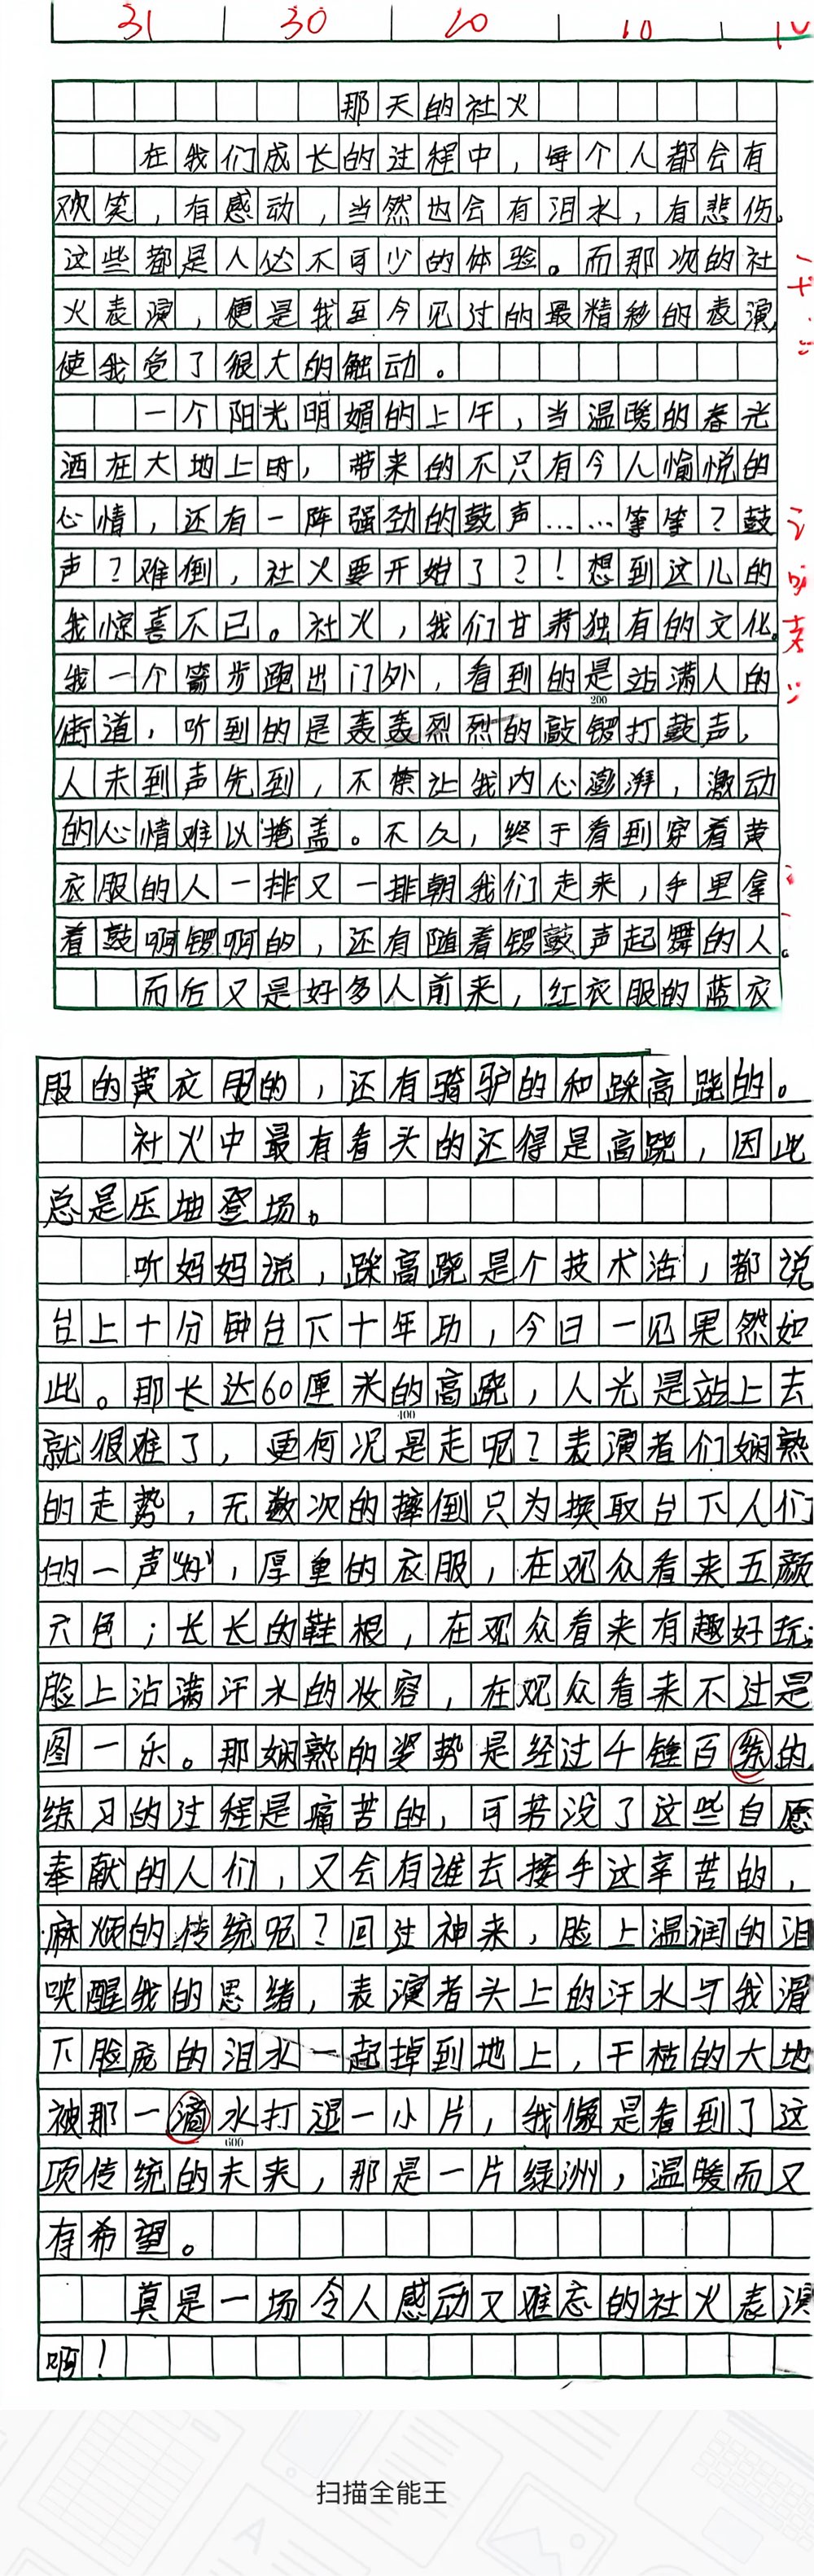 31 30 20 10
那天的社火
在我们成长的过程中，每个人都会有
欢笑，有感动，当然也会有泪水，有悲伤。
这些都是人必不可少的体验。而那次的社
火表演，便是我至今见过的最精秒的表演，
使我受了很大的触动。
一个阳光明媚的上午，当温暖的春光
洒在大地上时，带来的不只有令人愉悦的
心情，还有一阵强劲的鼓声……等等？鼓
声？难倒，社火要开始了？！想到这儿的
我惊喜不已。社火，我们甘肃独有的文化。
我一个箭步跑出门外，看到的是站满人的
200
街道，听到的是轰轰烈烈的敲锣打鼓声，
人未到声先到，不禁让我内心澎湃，激动
的心情难以掩盖。不久，终于看到穿着黄
衣服的人一排又一排朝我们走来，手里拿
着鼓啊锣啊的，还有随着锣鼓声起舞的人。
而后又是好多人前来，红衣服的蓝衣
服的黄衣服的，还有骑驴的和踩高跷的。
社火中最有看头的还得是高跷，因此
总是压轴登场。
听妈妈说，踩高跷是个技术活，都说
台上十分钟台下十年功，今日一见果然如
此。那长达60厘米的高跷，人光是站上去
400
就很难了，更何况是走呢？表演者们娴熟
的走势，无数次的摔倒只为换取台下人们
的一声“好”，厚重的衣服，在观众看来五颜
六色；长长的鞋根，在观众看来有趣好玩；
脸上沾满汗水的妆容，在观众看来不过是
图一乐。那娴熟的姿势是经过千锤百练的，
练习的过程是痛苦的，可若没了这些自愿
奉献的人们，又会有谁去接手这辛苦的，
麻烦的传统呢？回过神来，脸上温润的泪
唤醒我的思绪，表演者头上的汗水与我滑
下脸庞的泪水一起掉到地上，干枯的大地
被那一滴水打湿一小片，我像是看到了这
600
项传统的未来，那是一片绿洲，温暖而又
有希望。
真是一场令人感动又难忘的社火表演
啊！
扫描全能王